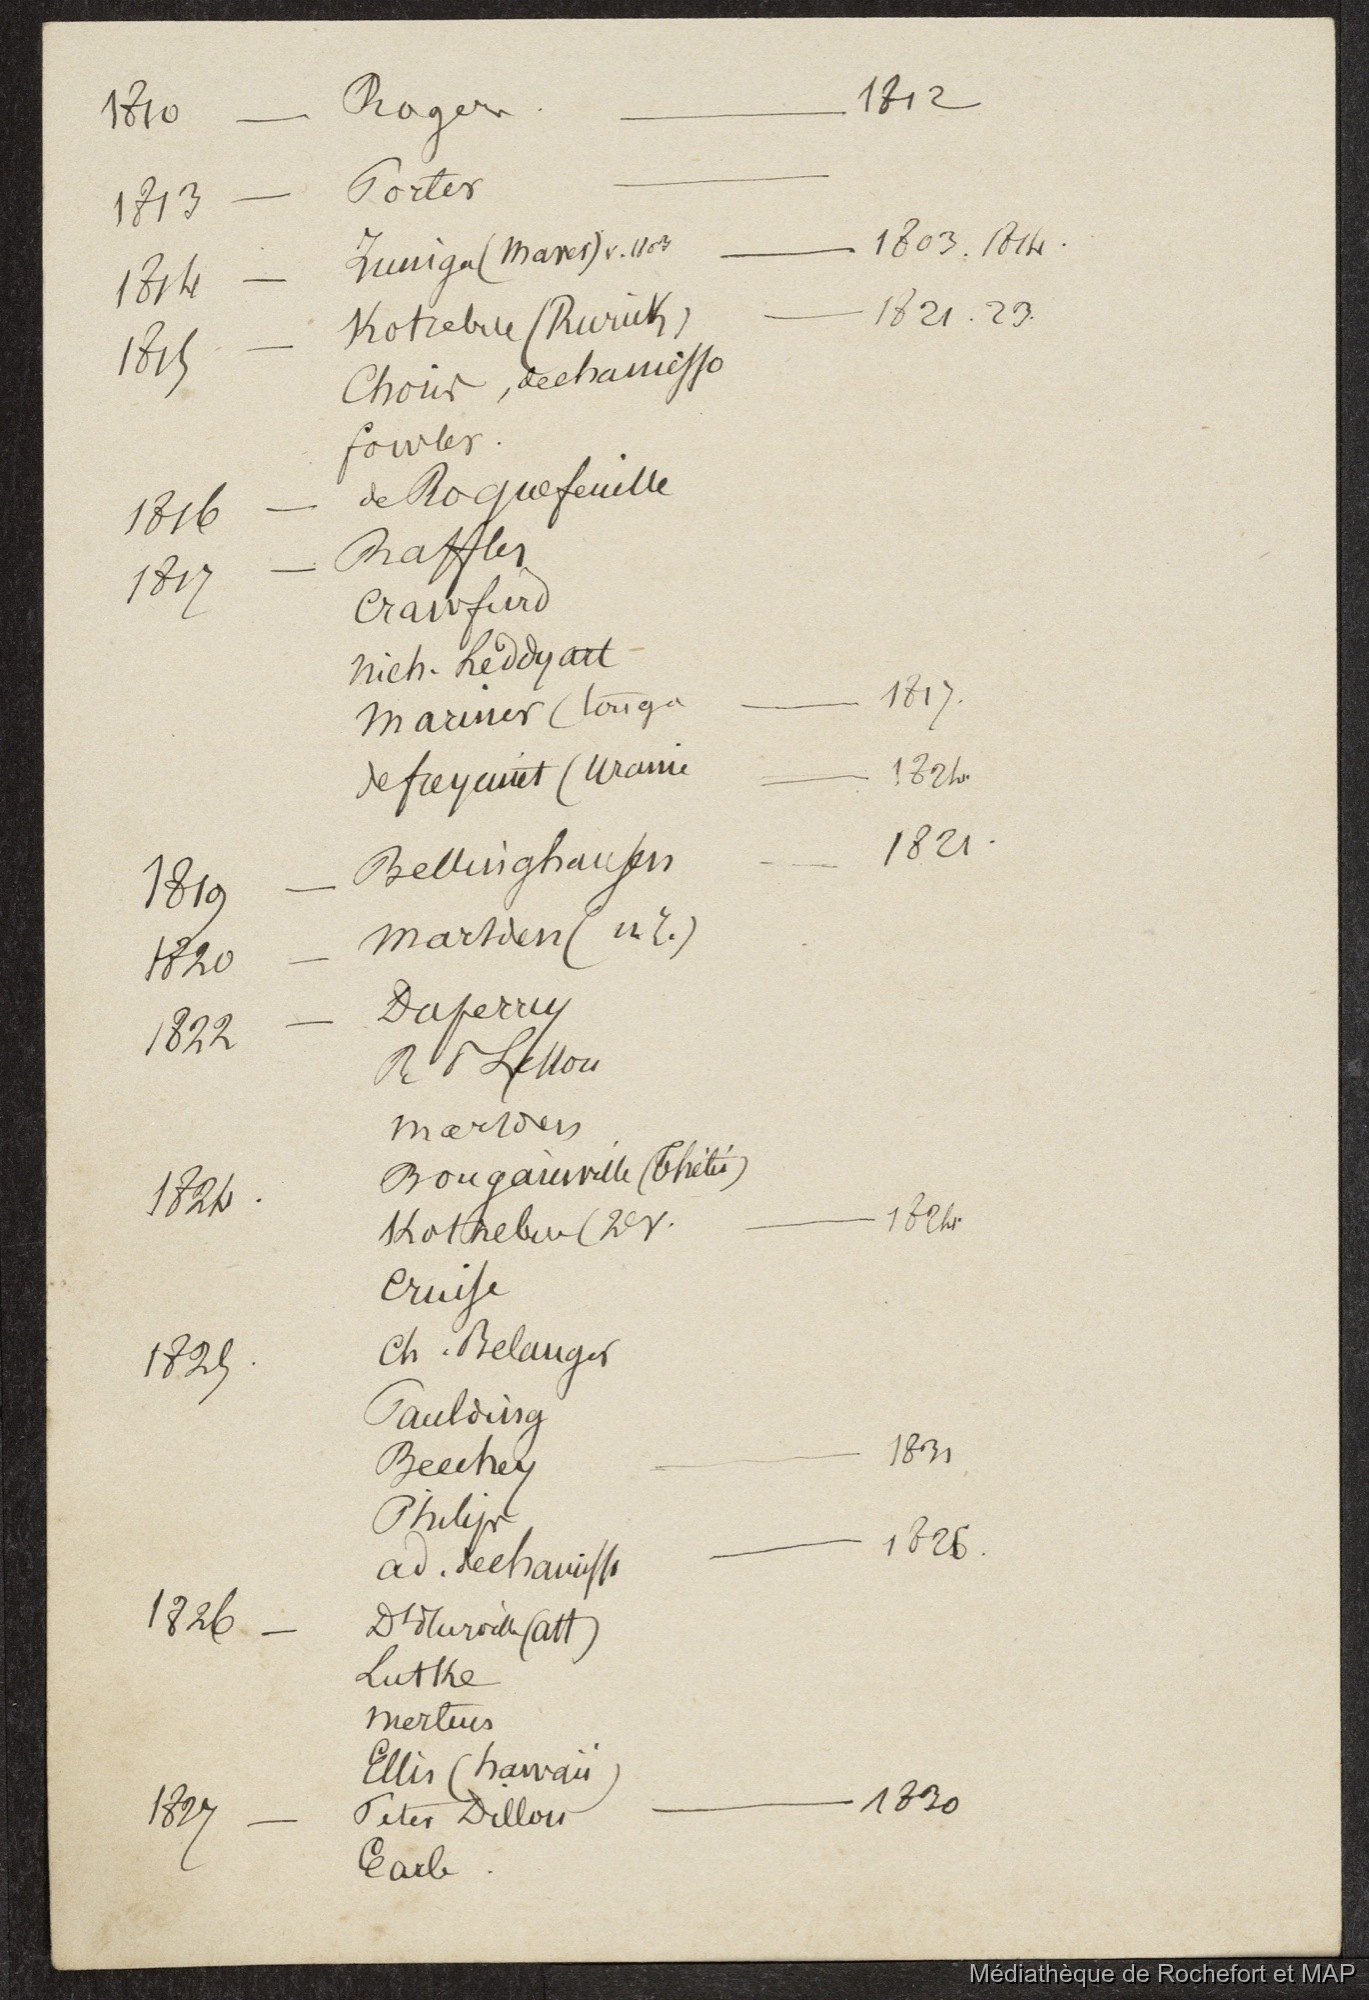 1810 — Roger . — 1812
1813 — Porter —
1814 — Zuniga (Maves) v. 1803 — 1803. 1814.
1815 — Kotzebue (Rurick) — 1821. 23.
Choris, de chamisso
fowler.
1816 — de Roquefeuille
1817 — Raffles
Crawfurd
nich. Leddyart
Mariner (tonga — 1817.
de freycinet (Uranie — 1824.
1819 — Bellinghausen — 1821.
1820 — Marsden (n. Z.)
1822 — Duperrey
R P Lesson
marsden
1824. Bougainville (Thétis)
Kotzebue (2e v. — 1824.
Cruise
1825. Ch. Belanger
Paulding
Beechey — 1831
Philips
ad. de chamisso — 1826.
1826 — Dt d'urville (att)
Lutke
mertens
Ellis (hawaii)
1827 — Peter Dillon — 1830
Earle.
Médiathèque de Rochefort et MAP